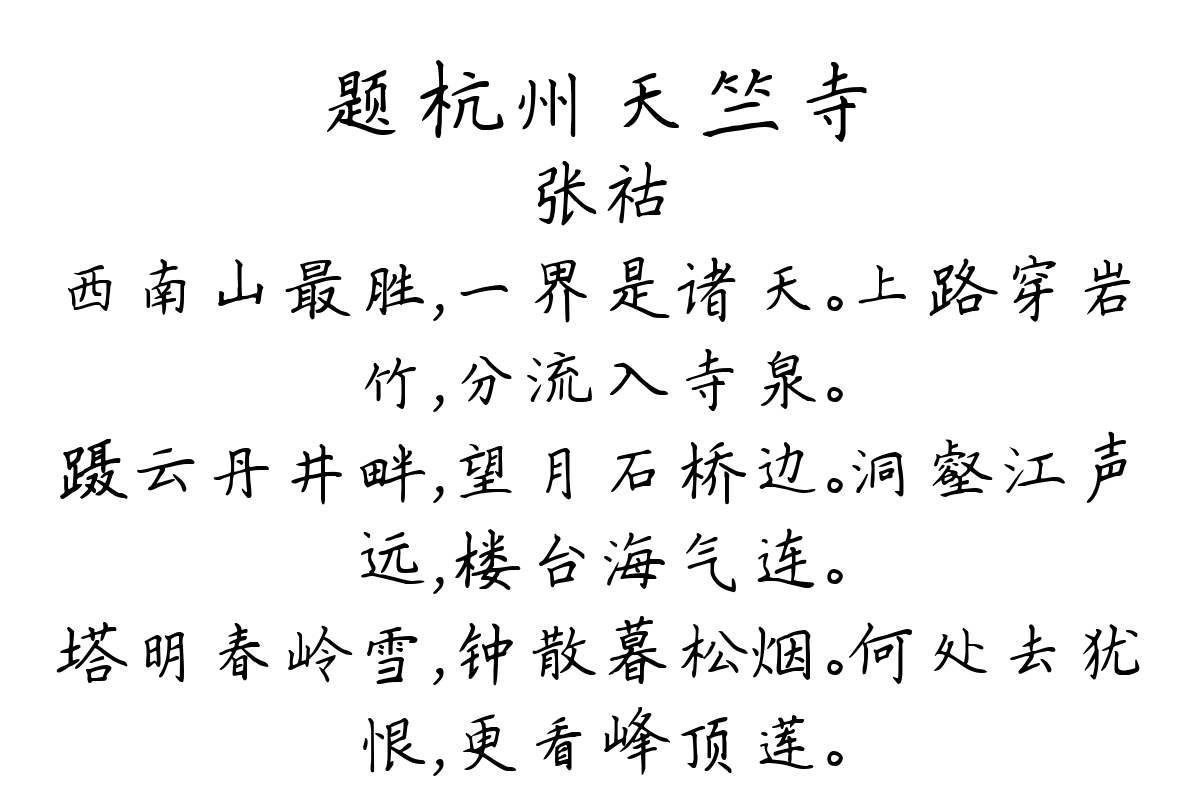 题杭州天竺寺
张祜
西南山最胜,一界是诸天。上路穿岩
竹,分流入寺泉。
蹑云丹井畔,望月石桥边。洞壑江声
远,楼台海气连。
塔明春岭雪,钟散暮松烟。何处去犹
恨,更看峰顶莲。